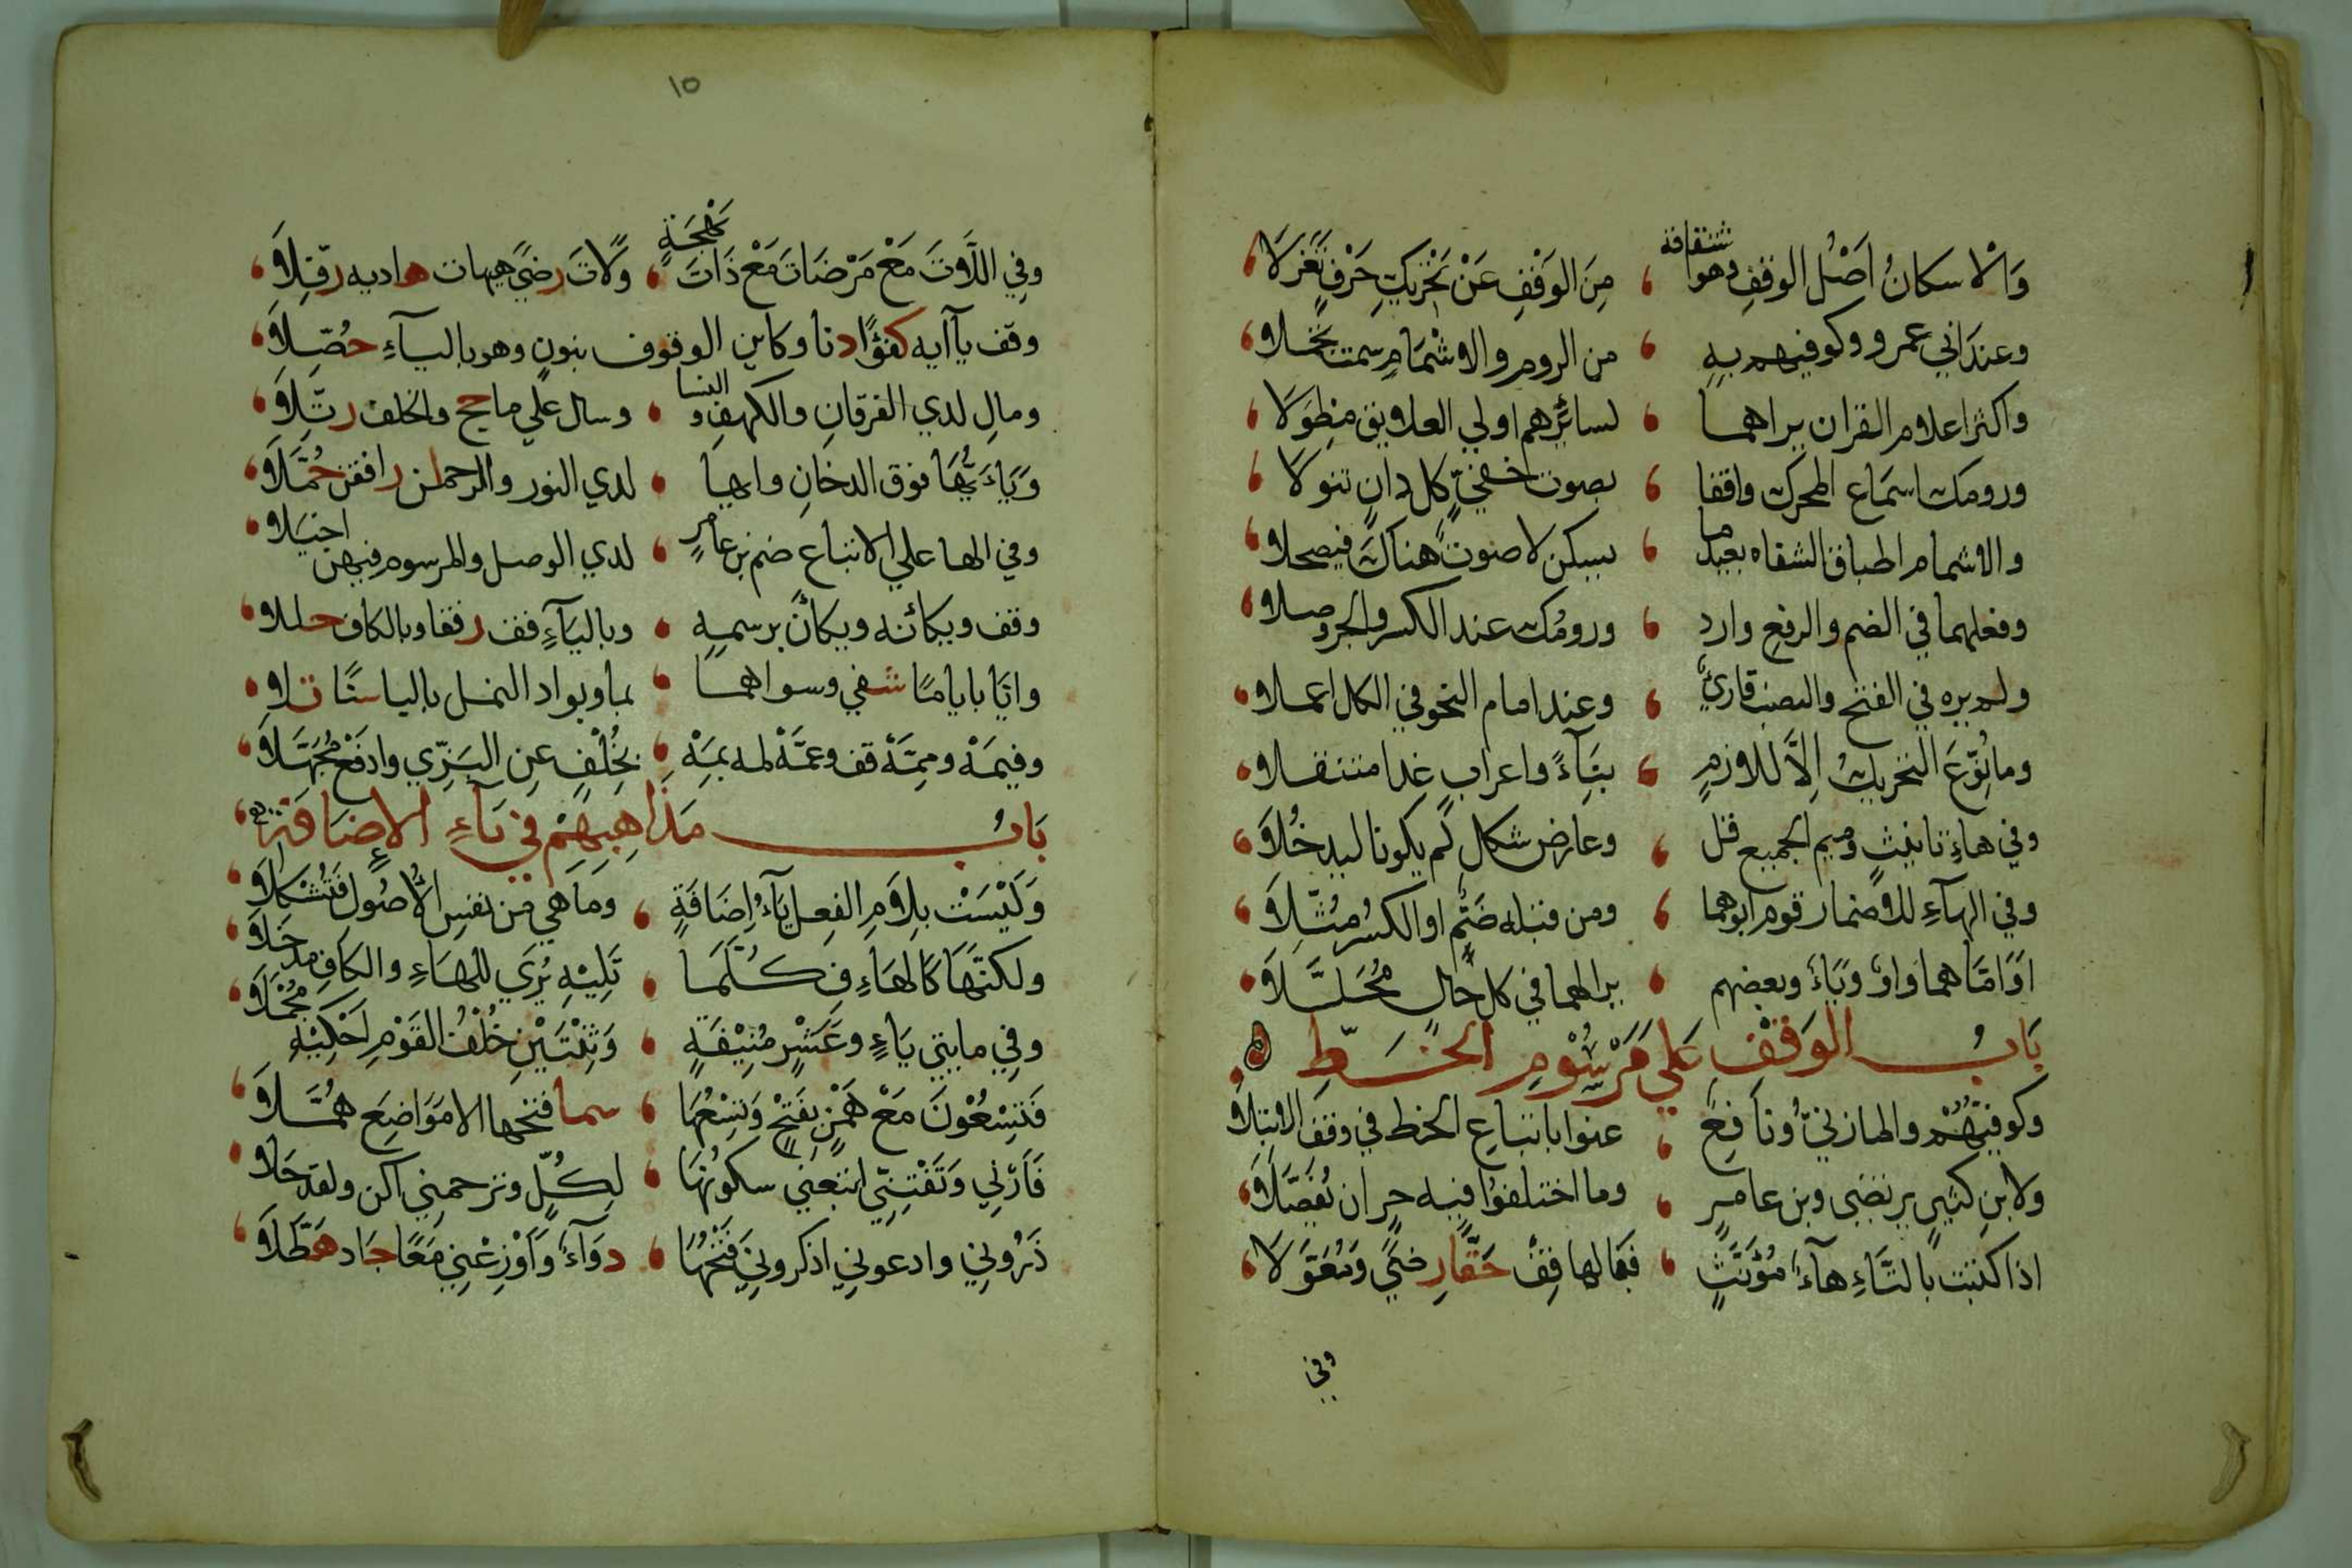 وَالْاسكانُ اَصْلُ الوقفِ وهو اشتقاقه ، مِنَ الوَقْفِ عَنْ تَحْرِيكِ حَرْفٍ تَعَزَّلَا
وعندَ ابي عمرو وكوفيهم به ، من الروم والاشْمَامِ سمت تجملا
واكثر اعلام القران يراهما ، لسائرِهم اولي العلايق مِطوَلَا
ورومك اسماع المحرك واقفا ، بصوت خفيٍّ كل دانٍ تنولَا
والاشمام اطباق الشفاه بعيد ما ، يسكن لا صوتٌ هناك فيصحلا
وفعلهما في الضم والرفع وارد ، ورومُك عند الكسر والجر وصلا
ولم يره في الفتح والنصب قارئٌ ، وعند امام النحو في الكل اعملا
وما نُوِّعَ التحريكُ اِلَّا للازمٍ ، بِنَآءً واعرابٍ غدا متنقلا
وفي هاءِ تانيثٍ وميم الجميع قل ، وعارض شكلٍ لم يكونا ليدخُلَا
وفي الهآءِ للاضمار قوم ابوهما ، ومن قبله ضَمٌّ او الكسرُ مُثِّلَا
اوَ امَّا هما واوٌ ويَاءٌ وبعضهم ، يرالهما في كل حالٍ مُحَلِّلَا
بَابُ الوَقْفِ عَلي مَرْسُوْمِ الخَطِّ
وكوفيّهُمْ والمازنيُّ ونَافِعٌ ، عنوا باتباعِ الخط في وقفَ الابتِلَا
ولابنِ كثيرٍ يرتضى وبن عامرٍ ، وما اختلفوا فيه حرٍ ان يُفَصَّلَا
اذا كتبت بالتَّاءِ هآءُ مُؤَنَّثٍ ، فبالها قِفْ حَقًّا رِضيً وَمُعَوَّلَا
وفي
١٥
وفِي اللَّاتَ مَعْ مَرْضَاتَ مَعْ ذَاتَ بَهْجَةٍ ، ولَاتَ رضيً هيهات هاديه رفّلَا
وقف يآ ابه كفؤًا دنا وكاين الوقوف بنونٍ وهو باليآءِ حُصّلَا
ومالِ لدي الفرقانِ والكهفِ والنسا ، وسال علي ما حج والخلف رتّلَا
وَيَاءَيُّهَا فوق الدخانِ وايها ، لدي النور والرحمن رافقن حُمَّلَا
وفي الها علي الاتباع ضم بن عامرٍ ، لدي الوصل والمرسوم فيهن اخيلا
وقف ويكانه ويكانَّ برسمه ، وباليَآءِ قف رفقا وبالكاف حللا
وايًّا بايامًا شفي وسواهما ، بما وبواد النمل باليا سنًا تلا
وفيمَهْ ومِمَّهْ قف وعمَّهْ لمه بِمَهْ ، بِخُلْفٍ عنِ البَزِّي وادفعْ مُجَهِّلَا
بَابُ مَذَاهِبِهِمْ في يَآءِ الاضَافَةِ
وَلَيْسَتْ بِلَامِ الفِعلِ يَآءُ اِضَافَةٍ ، وَمَا هي من نفسِ الاُصُولِ فَتُشْكِلَا
ولكنَّهَا كَالهَاءِ والكَافِ كُلَّمَا ، تَلِيْهِ يُرَي للهَاءِ والكَافِ مدخَلَا
وفِي مايتي يَاءٍ وعَشْرٍ مُنِيْفَةٍ ، وَثِنْتَيْنِ خُلْفُ القَوْمِ اَحْكِيْهِ مُجْمَلَا
فَتِسْعُوْنَ مَعْ هَمْزٍ بِفَتْحٍ وَتِسْعُهَا ، سما فتحها الا مَوَاضِعَ هُمَّلَا
فَاَرْنِي وَتَفْتِنِّي اتبعنِي سكونُهَا ، لِكُلٍّ وترحمنِي اكن ولقد جَلَا
ذَرُونِي وادعونِي اذكرونِيَ فَتْحُهَا ، دوَآءٌ وَاَوْزِعْنِي مَعًا جَاد هَطَّلَا